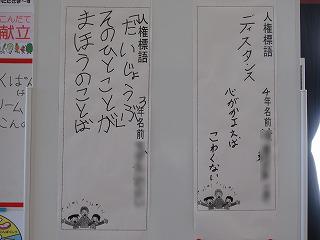 人権標語
ディスタンス
心がかよえば
こわくない
4年名前
人権標語
「だいじょうぶ」
そのひとことが
まほうのことば
3年名前
こんだて
献立
くぱん
リーム
こんの